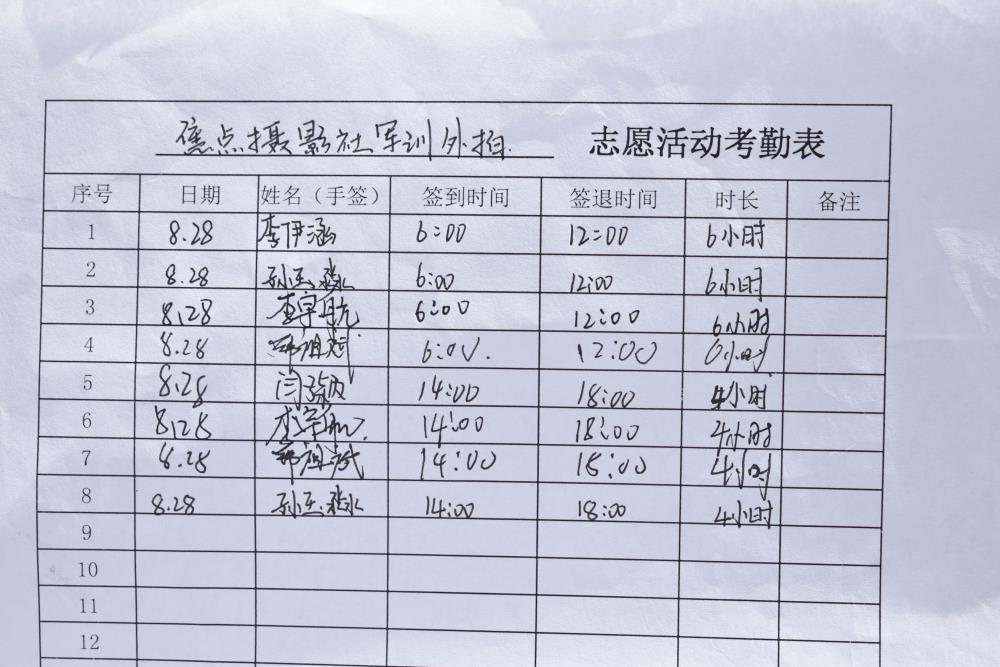 焦点摄影社军训外拍 志愿活动考勤表
序号 日期 姓名（手签） 签到时间 签退时间 时长 备注
1 8.28 李伊涵 6:00 12:00 6小时
2 8.28 孙玉淼 6:00 12:00 6小时
3 8.28 李宇航 6:00 12:00 6小时
4 8.28 6:00. 12:00 6小时
5 8.28 闫 14:00 18:00 4小时
6 8.28 李宇航 14:00 18:00 4小时
7 8.28 14:00 18:00 4小时
8 8.28 孙玉淼 14:00 18:00 4小时
9
10
11
12